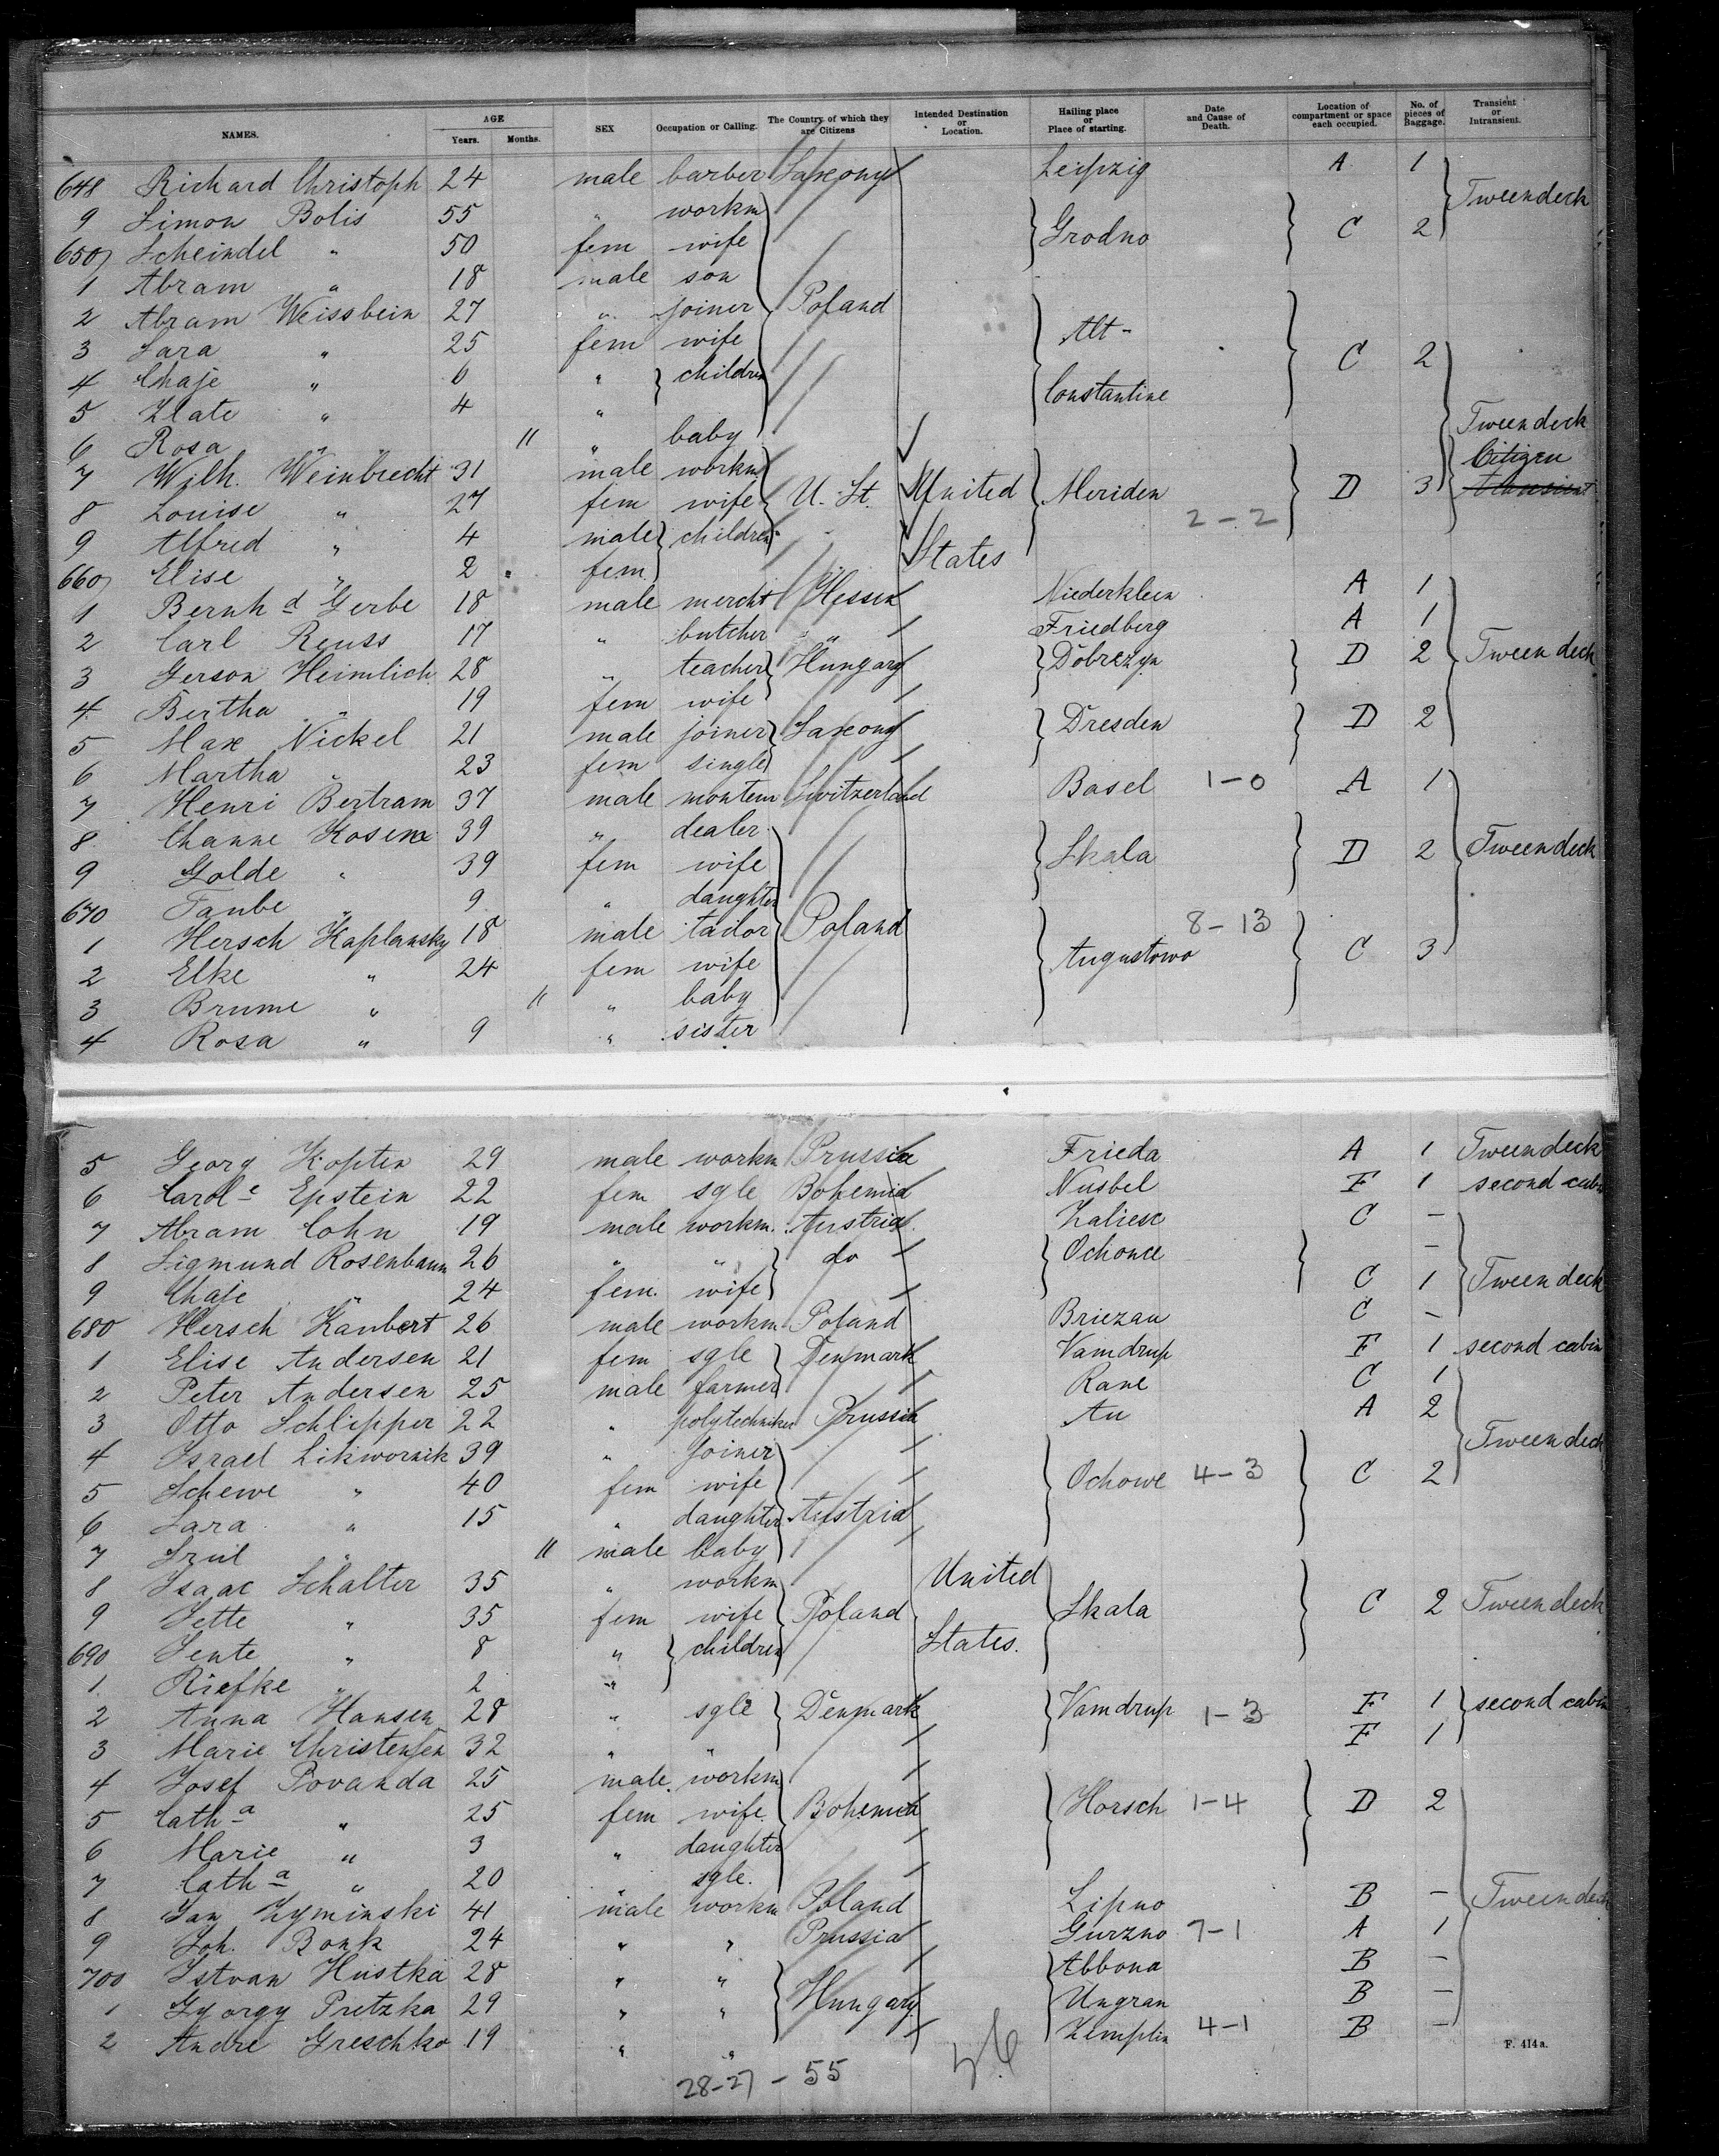 NAMES. AGE Years. Months. SEX Occupation or Calling. The Country of which they are Citizens Intended Destination or Location. Hailing place or Place of starting. Date and Cause of Death. Location of compartment or space each occupied. No. of pieces of Baggage. Transient or Intransient.
648 Richard Christoph 24 male barber Saxony Leipzig A 1 Tweendeck
9 Simon Bolis 55 " workm Grodno C 2
650 Scheindel " 50 fem wife
1 Abram " 18 male son
2 Abram Weissbein 27 " joiner Poland Alt-
3 Sara " 25 fem wife C 2
4 Chaje " 6 " children Constantine
5 Zlate " 4 " Tweendeck
6 Rosa " 11 " baby
7 Wilh. Weinbrecht 31 male workm U. St. United Meriden D 3 Citizen
8 Louise " 27 fem wife 2-2
9 Alfred " 4 male children States
660 Elise " 2 fem
1 Bernhd Gerbe 18 male mercht Hessen Niederklein A 1
2 Carl Reuss 17 " butcher " Friedberg A 1
3 Gerson Heimlich 28 " teacher Hungary Dobrezyn D 2 Tweendeck
4 Bertha " 19 fem wife
5 Max Nickel 21 male joiner Saxony Dresden D 2
6 Martha " 23 fem single
7 Henri Bertram 37 male montem Switzerland Basel 1-0 A 1
8 Channe Kosene 39 " dealer Skala D 2 Tweendeck
9 Golde " 39 fem wife
670 Taube " 9 " daughter
1 Hersch Kaplansky 18 male tailor Poland Augustowo 8-13 C 3
2 Elke " 24 fem wife
3 Brume " 11 " baby
4 Rosa " 9 " sister
5 Georg Kopten 29 male workm Prussia Frieda A 1 Tweendeck
6 Carole Epstein 22 fem sgle Bohemia Nusbel F 1 second cabin
7 Abram Cohn 19 male workm. Austria Zaliesc C -
8 Sigmund Rosenbaum 26 " " do Ochonce -
9 Chaje " 24 fem. wife C 1 Tweendeck
680 Hersch Kanbert 26 male workm Poland Briezau C -
1 Elise Andersen 21 fem sgle Denmark Vamdrup F 1 second cabin
2 Peter Andersen 25 male farmer Rane C 1
3 Otto Schlipper 22 " polytechniker Prussia Au A 2
4 Israel Likwornik 39 " joiner Tweendeck
5 Schewe " 40 fem wife Ochowe 4-3 C 2
6 Sara " 15 " daughter Austria
7 Srul " 11 male baby
8 Isaac Schalter 35 " workm United
9 Jette " 35 fem wife Poland Skala C 2 Tweendeck
690 Jente " 8 " children States.
1 Riefke " 2 "
2 Anna Hansen 28 " sgle Denmark Vamdrup 1-3 F 1 second cabin
3 Marie Christensen 32 " " F 1
4 Josef Povanda 25 male workm
5 Catha " 25 fem wife Bohemia Horsch 1-4 D 2
6 Marie " 3 " daughter
7 Catha " 20 " sgle.
8 Jan Zyminski 41 male workm Poland Lipno B - Tweendeck
9 Joh. Bonk 24 " " Prussia Gurzno 7-1 A 1
700 Istvan Hustka 28 " " Abbona B -
1 Gyorgy Pretzka 29 " " Hungary Ungran B -
2 Andre Greschko 19 " " Zemplin 4-1 B -
F. 414a.
28-27-55 56